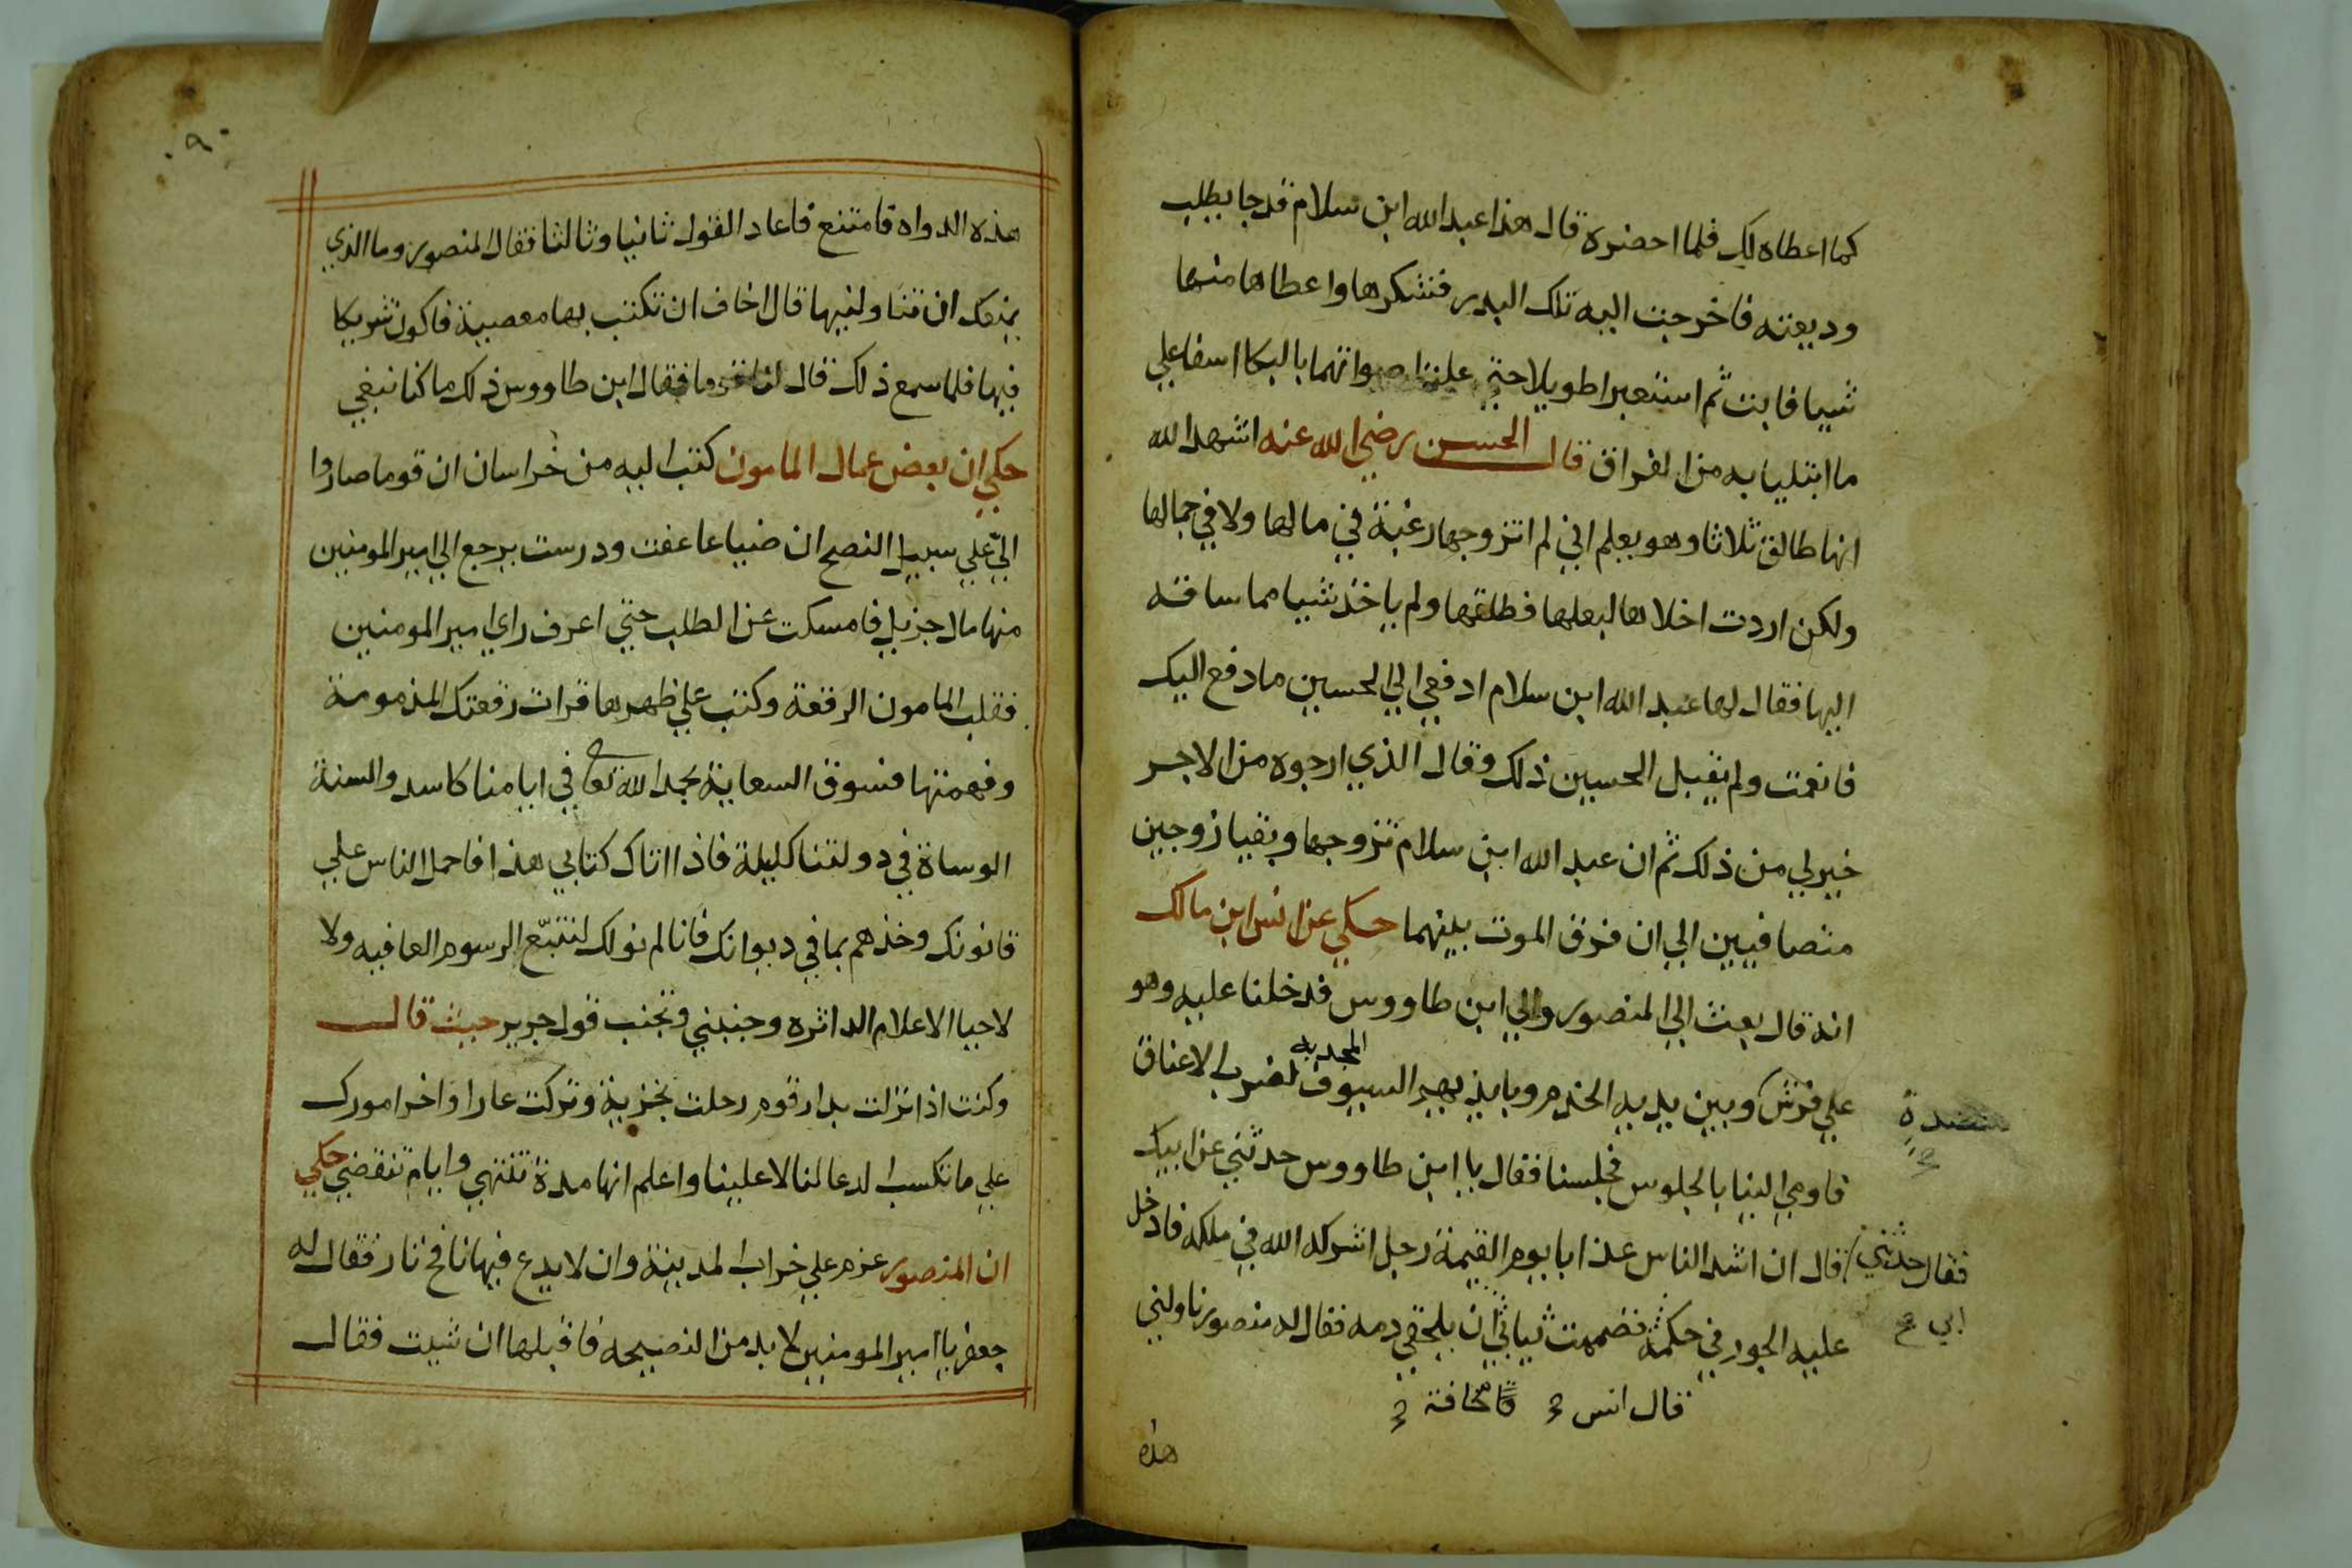 كما اعطاه لك فلما احضره قال هذا عبد الله ابن سلام قد جا بطلب
وديعته فاخرجت اليه تلك البدر فتشكرها واعطاها منها
شيا فابت ثم استعبرا طويلا حتي علت اصواتهما بالبكا اسفا علي
ما ابتليا به من الفراق قال الحسن رضي الله عنه اشهد الله
انها طالق ثلاثا وهو يعلم اني لم اتزوجها رغبة في مالها ولا في جمالها
ولكن اردت احلالها لبعلها فطلقها ولم ياخذ شيا مما ساقه
اليها فقال لها عبد الله ابن سلام ادفعي الي الحسين ما دفع اليك
فانعمت ولم يقبل الحسين ذلك وقال الذي ارجوه من الاجر
خير لي من ذلك ثم ان عبد الله ابن سلام تزوجها وبقيا زوجين
متصافيين الي ان فرق الموت بينهما حكي عن انس ابن مالك
انه قال بعث الي المنصور والي ابن طاووس فدخلنا عليه وهو
علي فرش وبين يديه الخدم وبايديهم السيوف المجدبه لضرب الاعناق
منضدة
فاومي الينا بالجلوس فجلسنا فقال يا ابن طاووس حدثني عن ابيك
فقال حدثني قال ان اشد الناس عذابا يوم القيمة رجل اشركه الله في ملكه فادخل
ابي
عليه الجور في حكمه فضممت ثيابي ان يلحقني دمه فقال له منصور ناولني
قال انس مخافة
هذه
٩٠
هذه الدواه فامتنع فاعاد القول ثانيا وثالثا فقال المنصور وما الذي
يمنعك ان تناولنيها قال اخاف ان تكتب بها معصية فاكون شريكا
فيها فلما سمع ذلك قال قوما فقال ابن طاووس ذلك ما كنا نبغي
حكي ان بعض عمال المامون كتب اليه من خراسان ان قوما صاروا
الي علي سبيل النصح ان ضياعا عفت ودرست يرجع الي امير المومنين
منها مال جزيل فامسكت عن الطلب حتي اعرف راي امير المومنين
فقلب المامون الرقعة وكتب علي ظهرها قرات رقعتك المذمومة
وفهمتها فسوق السعاية بحمد الله تعا في ايامنا كاسد والسنة
الوساة في دولتنا كليلة فاذا اتاك كتابي هذا فاحمل الناس علي
قانونك وخذهم بما في ديوانك فانا لم نولك لتتبع الرسوم العافيه ولا
لاحيا الاعلام الداثره وجنبني وتجنب قول جرير حيث قال
وكنت اذا نزلت بدار قوم رحلت بخزية وتركت عارا واخر امورك
علي ما تكسب الدعا لنا لا علينا واعلم انها مدة تنتهي وايام تنقضي حكي
ان المنصور عزم علي خراب المدينة وان لا يدع فيها نافخ نار فقال له
جعفر يا امير المومنين لا بد من النصيحه فاقبلها ان شيت فقال